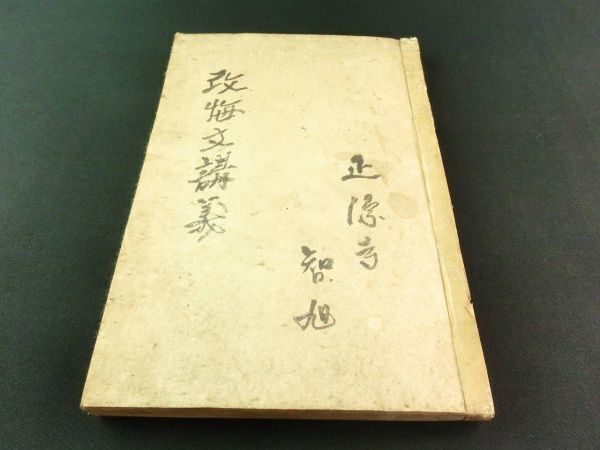 改悔文講義
正源寺
智旭